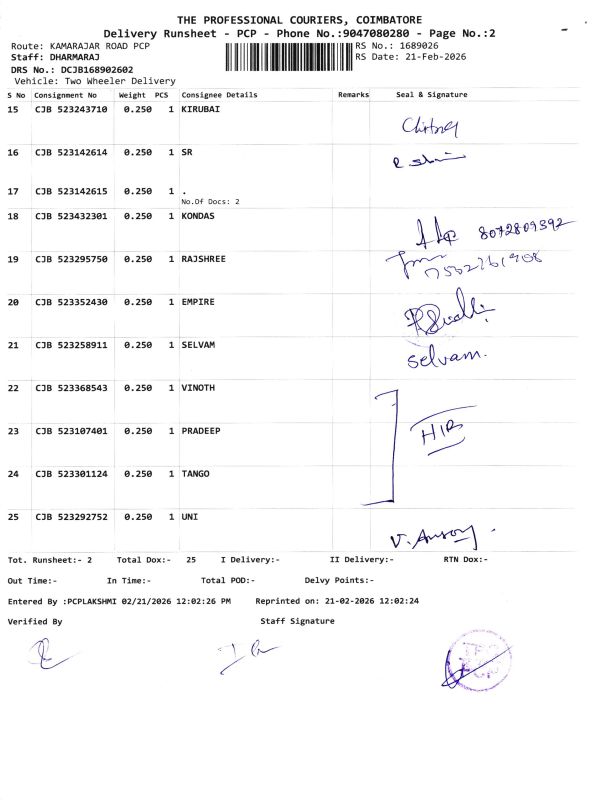 THE PROFESSIONAL COURIERS, COIMBATORE
Delivery Runsheet - PCP - Phone No.:9047080280 - Page No.:2
Route: KAMARAJAR ROAD PCP RS No.: 1689026
Staff: DHARMARAJ RS Date: 21-Feb-2026
DRS No.: DCJB168902602
Vehicle: Two Wheeler Delivery
S No Consignment No Weight PCS Consignee Details Remarks Seal & Signature
15 CJB 523243710 0.250 1 KIRUBAI
16 CJB 523142614 0.250 1 SR
17 CJB 523142615 0.250 1 .
No.Of Docs: 2
18 CJB 523432301 0.250 1 KONDAS
8072809392
19 CJB 523295750 0.250 1 RAJSHREE
20 CJB 523352430 0.250 1 EMPIRE
21 CJB 523258911 0.250 1 SELVAM
selvam.
22 CJB 523368543 0.250 1 VINOTH
23 CJB 523107401 0.250 1 PRADEEP
24 CJB 523301124 0.250 1 TANGO
25 CJB 523292752 0.250 1 UNI
Tot. Runsheet:- 2 Total Dox:- 25 I Delivery:- II Delivery:- RTN Dox:-
Out Time:- In Time:- Total POD:- Delvy Points:-
Entered By :PCPLAKSHMI 02/21/2026 12:02:26 PM Reprinted on: 21-02-2026 12:02:24
Verified By Staff Signature